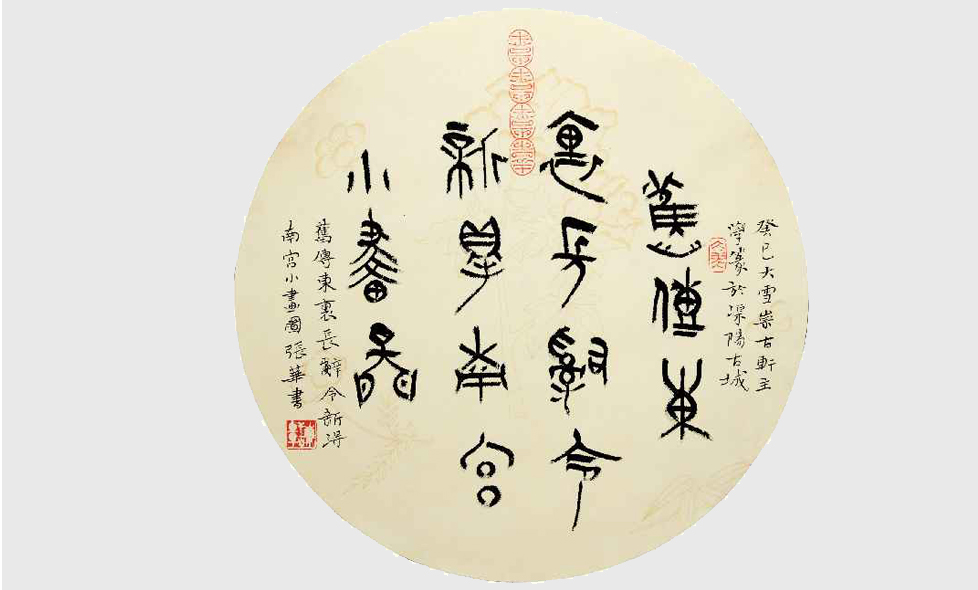 癸巳大雪崇古軒主
學篆於溧陽古城
舊傳東
裏長辭令
新得南宮
小畫圖
舊傳東裏長辭令新得
南宮小畫圖張華書